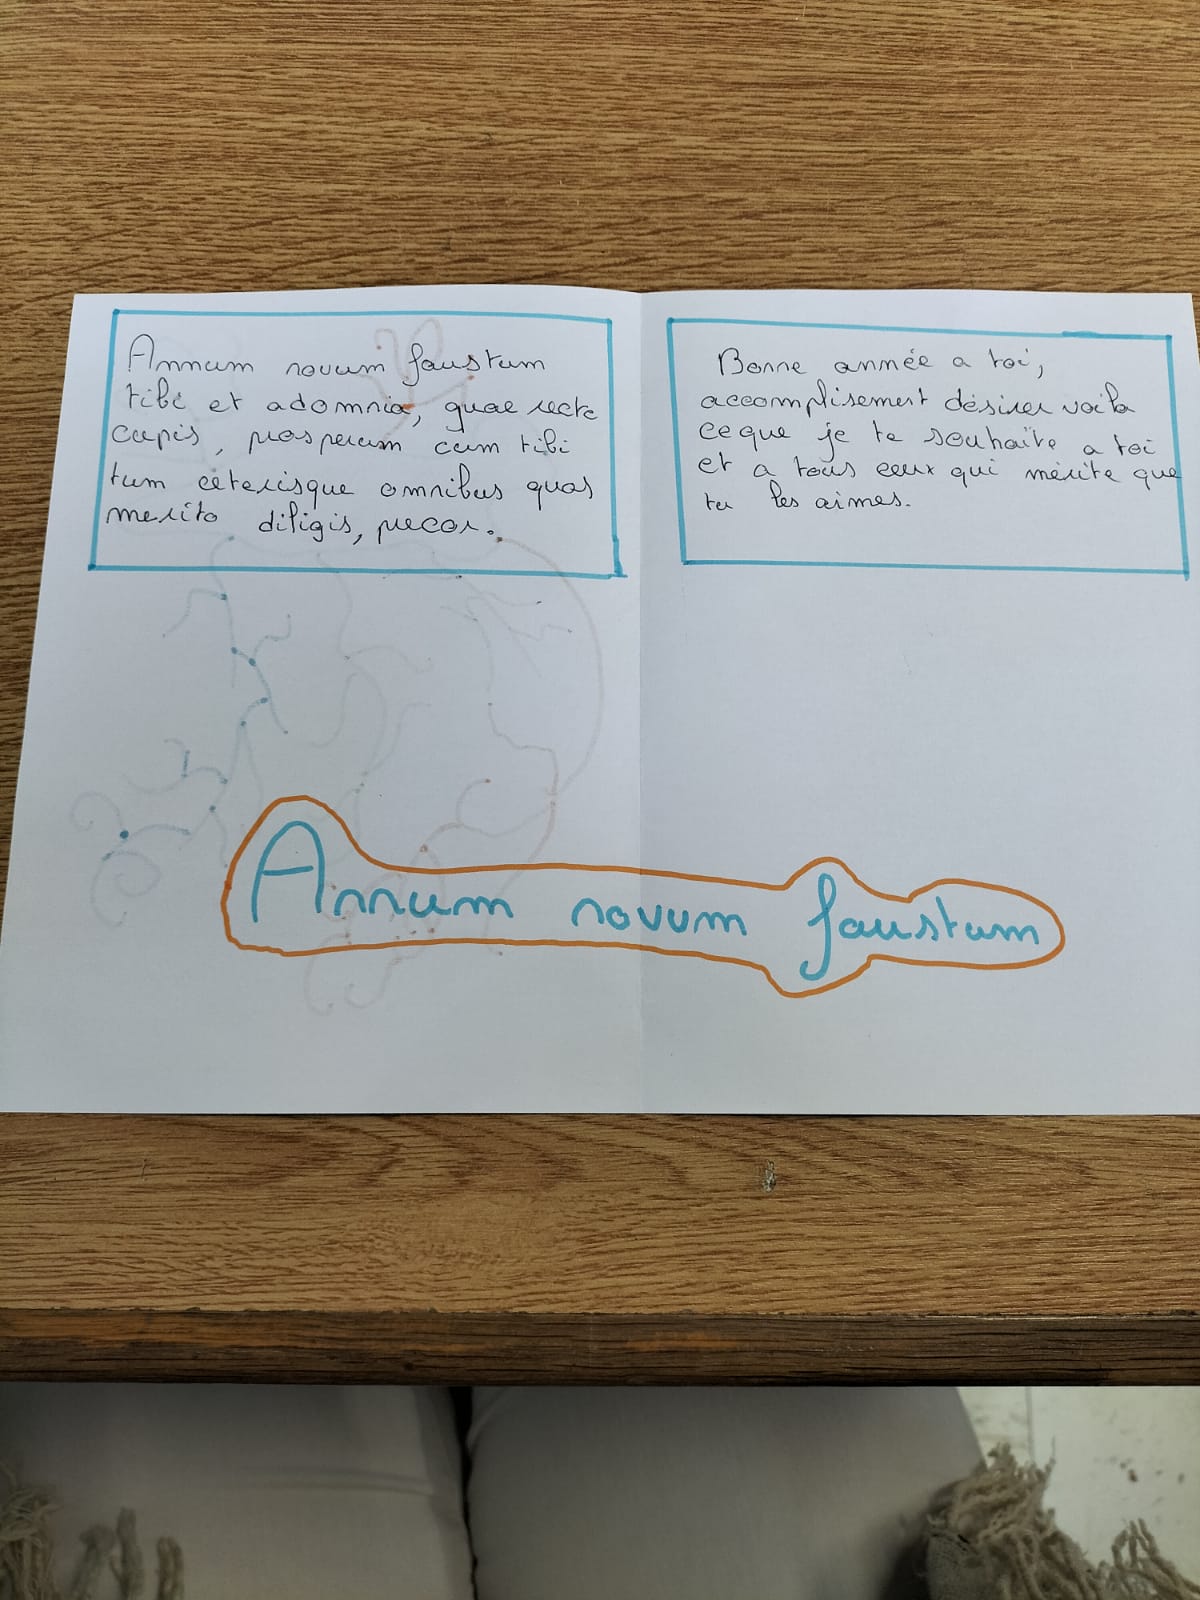 Annum novum faustum
tibi et adomnia, quae recte
cupis, prosperum cum tibi
tum ceterisque omnibus quos
merito diligis, precor.
Bonne année a toi,
accomplisement désirer voila
ce que je te souhaite a toi
et a tous ceux qui mérite que
tu les aimes.
Annum novum faustum